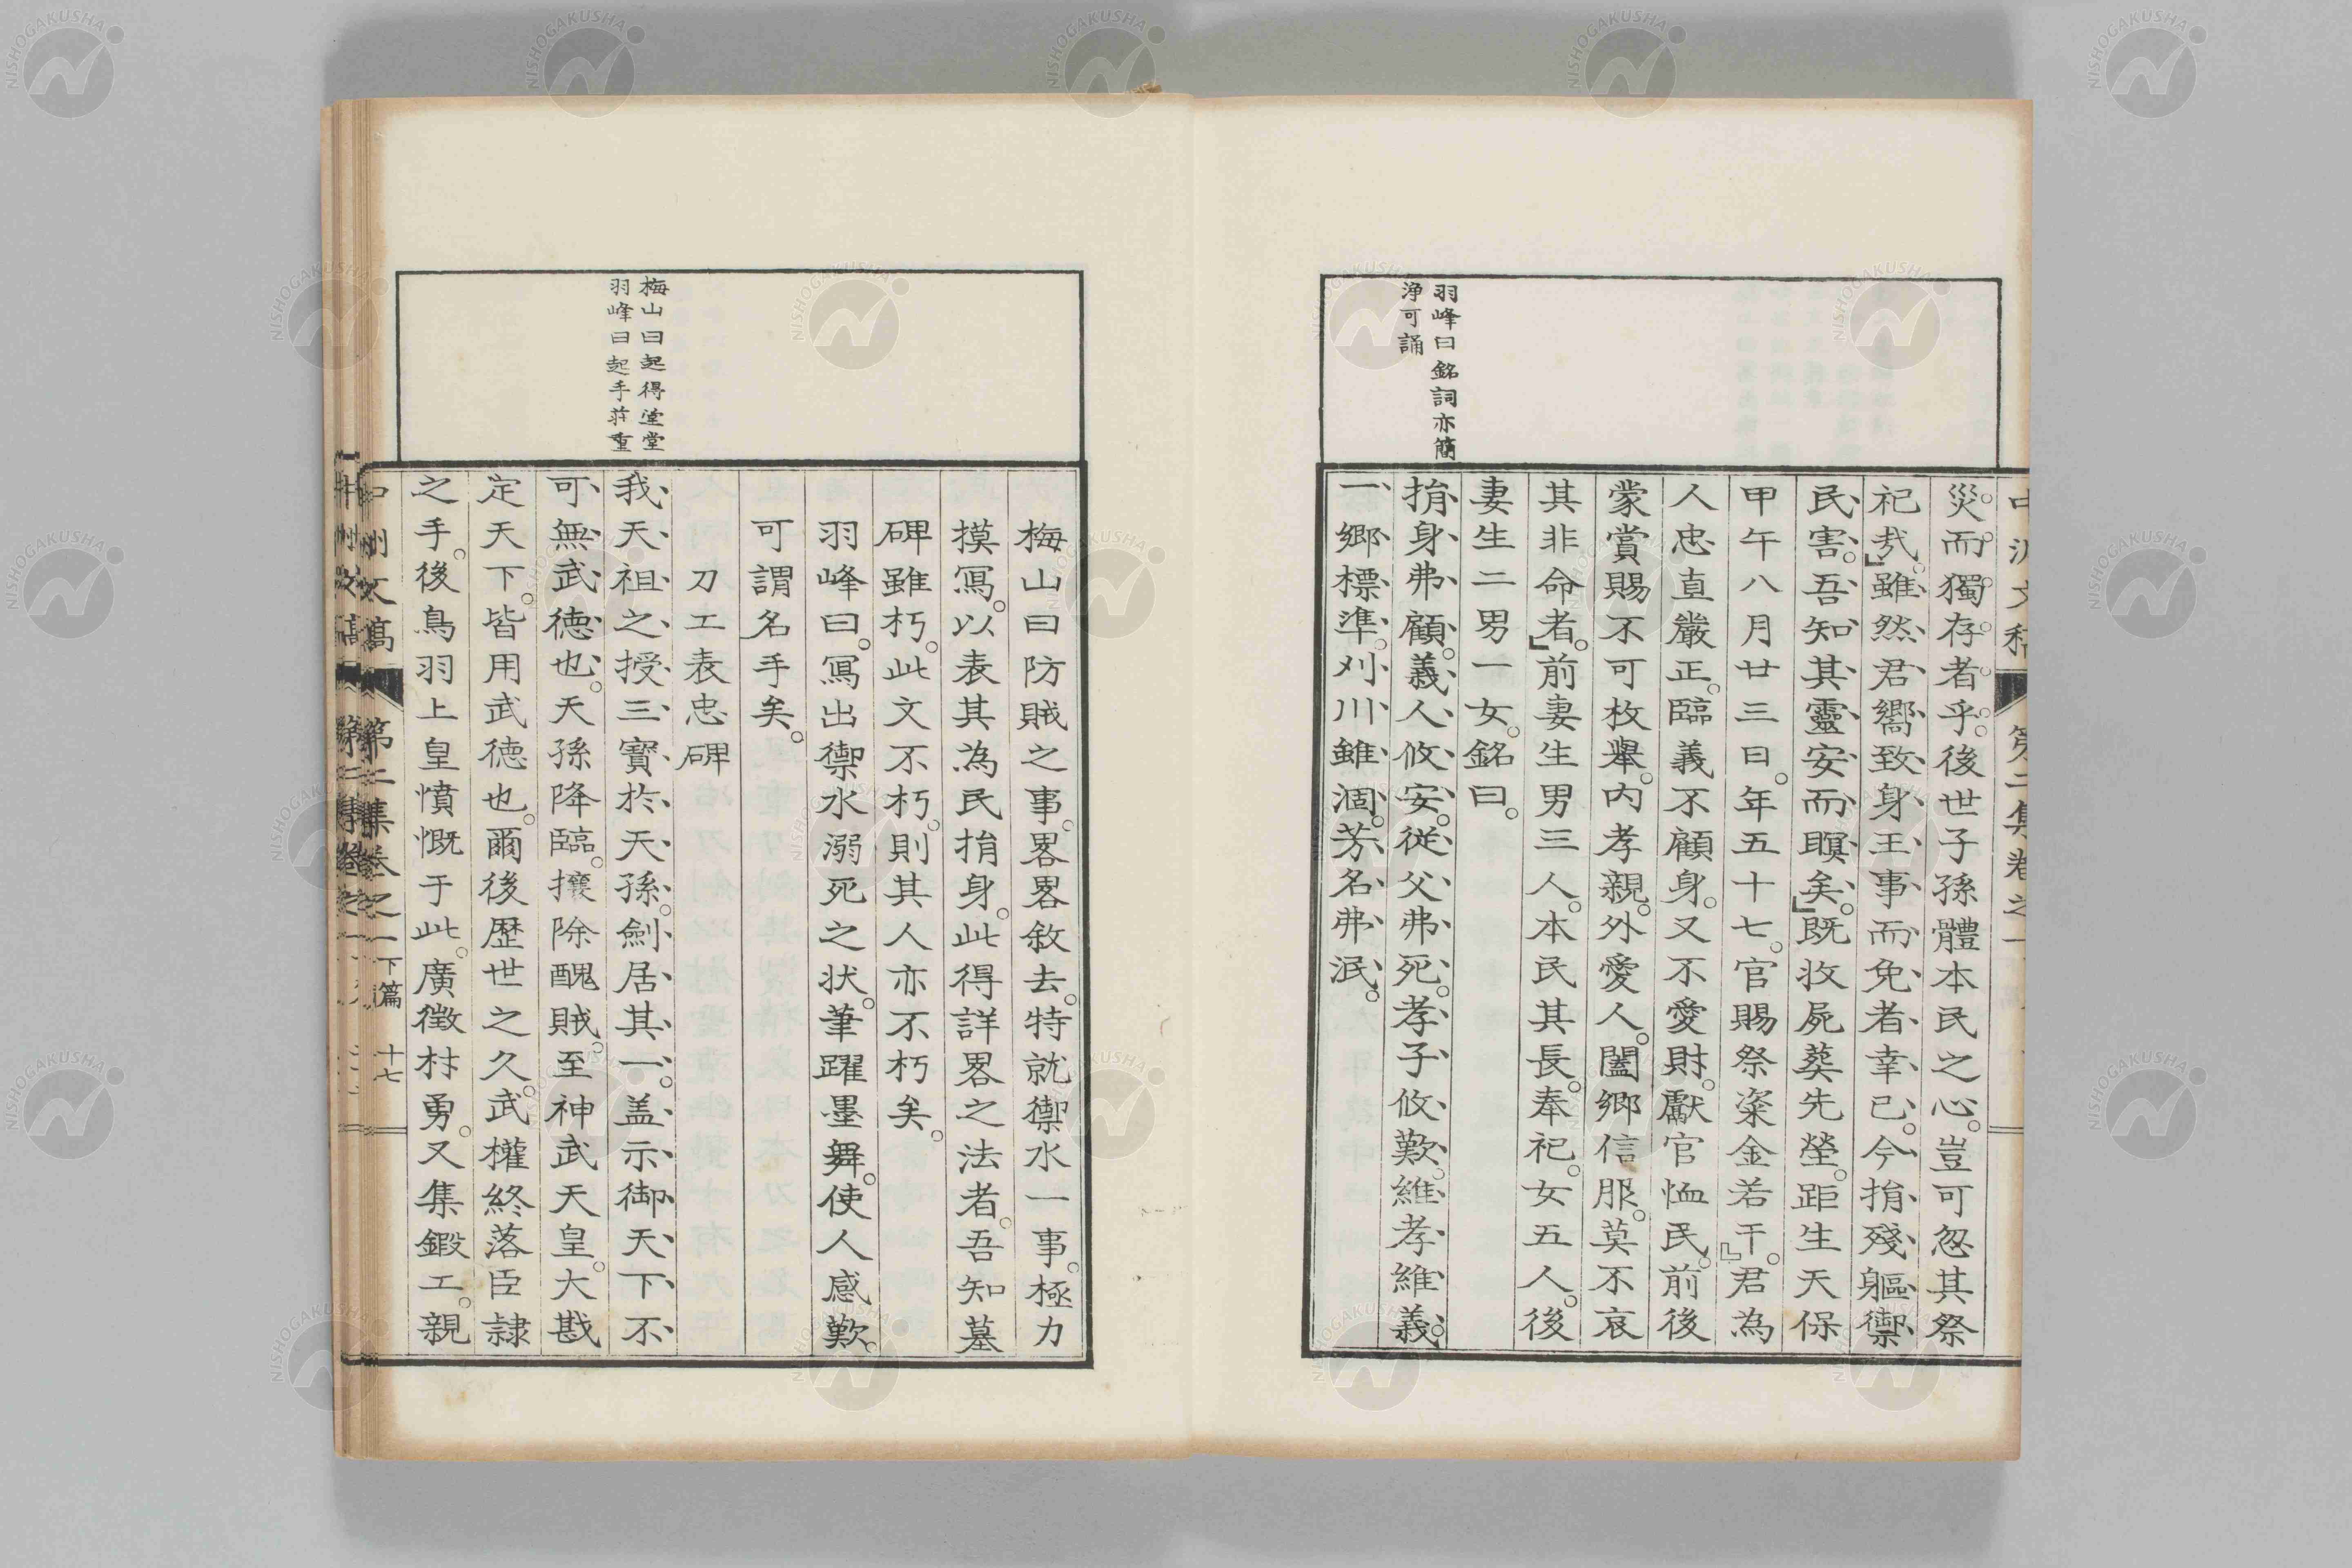 羽峰曰銘詞亦簡
浄可誦
災而獨存者乎後世子孫體本民之心豈可忽其祭
祀㢤雖然君嚮致身王事而免者幸已今捐殘軀禦
民害吾知其靈安而瞑矣既收屍葬先塋距生天保
甲午八月廿三日年五十七官賜祭粢金若干君為
人忠直嚴正臨義不顧身又不愛財獻官恤民前後
蒙賞賜不可枚舉内孝親外愛人闔郷信服莫不哀
其非命者前妻生男三人本民其長奉祀女五人後
妻生二男一女銘曰
捐身弗顧義人攸安従父弗死孝子攸歎維孝維義
一郷標準刈川雖涸芳名弗泯
梅山曰起得堂堂
羽峰曰起手荘重
梅山曰防賊之事畧畧敘去特就禦水一事極力
摸寫以表其為民捐身此得詳畧之法者吾知墓
碑雖朽此文不朽則其人亦不朽矣
羽峰曰寫出禦水溺死之状筆躍墨舞使人感歎
可謂名手矣
刀工表忠碑
我天祖之授三寶於天孫劍居其一盖示御天下不
可無武徳也天孫降臨攘除醜賊至神武天皇大戡
定天下皆用武徳也爾後歴世之久武權終落臣隷
之手後鳥羽上皇憤慨于此廣徴材勇又集鍛工親
第二集巻之一下篇 十七